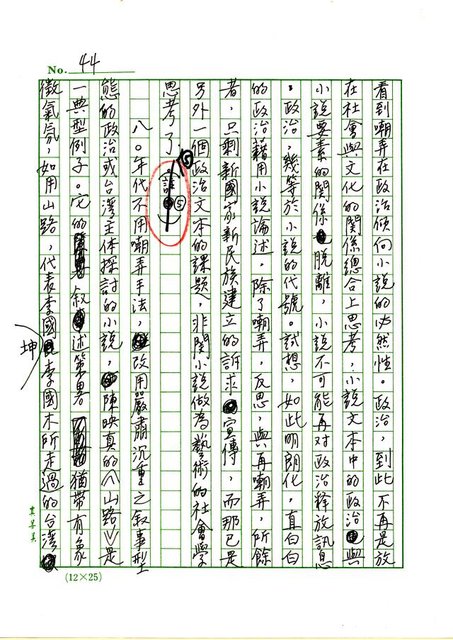 No. 44
看到嘲弄在政治傾向小說的必然性。政治,到此不再是放
在社會與文化的關係總合上思考,小說文本中的政治與
小說要素的關係脫離,小說不可能再對政治釋放訊息
。政治,幾等於小說的代號。試想,如此明朗化,直白白
的政治藉用小說論述,除了嘲弄、反思,與再嘲弄,所餘
者,只剩新國家新民族建立的訴求宣傳,而那已是
另外一個政治文本的課題,非關小說做為藝術的社會學
思考了。⑤
八〇年代不用嘲弄手法,改用嚴肅沉重之敘事型
態的政治或台灣主體探討的小說,陳映真的〈山路〉是
一典型例子。它的敘述策略猶帶有象
徵氣氛,如用山路,代表李國坤李國木所走過的台灣
(12×25)